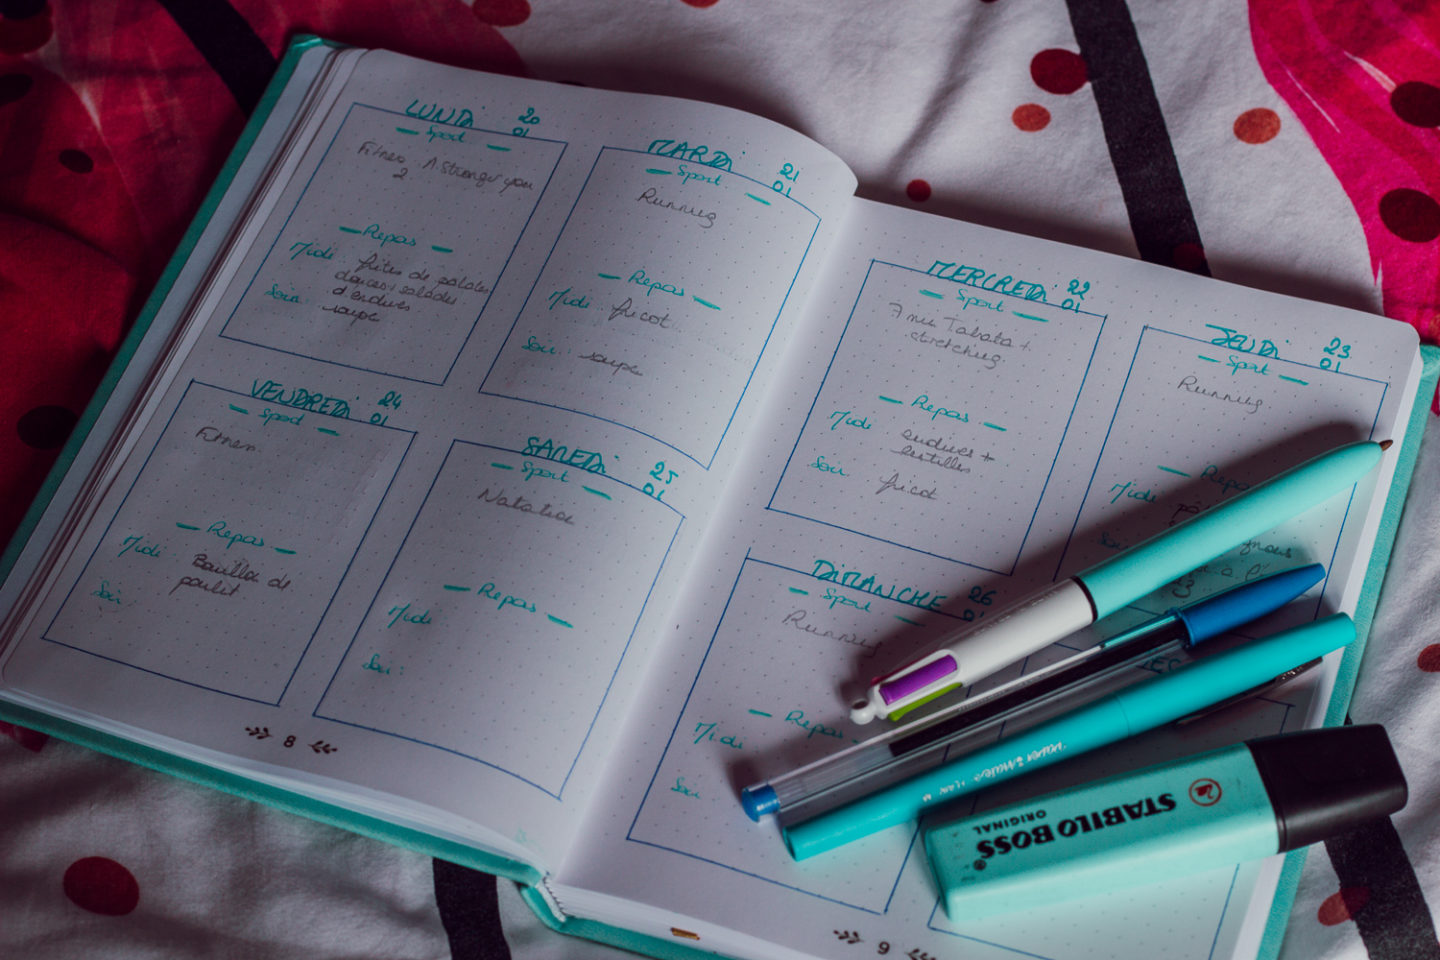 LUNDI 20
01
Sport
Fitness A Stronger you
2
Repas
Midi : frites de patates
douces + salades
d'endives
Soir : soupe
MARDI 21
01
Sport
Running
Repas
Midi : fricot
Soir : soupe
VENDREDI 24
01
Sport
Fitness
Repas
Midi : Bouillon de
poulet
Soir :
SAMEDI 25
01
Sport
Natation
Repas
Midi :
Soir :
8
MERCREDI 22
01
Sport
7 min Tabata +
stretching
Repas
Midi : endives +
lentilles
Soir : fricot
JEUDI 23
01
Sport
Running
Repas
Midi :
Soir :
DIMANCHE 26
01
Sport
Running
Repas
Midi :
Soir :
9
STABILO BOSS
ORIGINAL